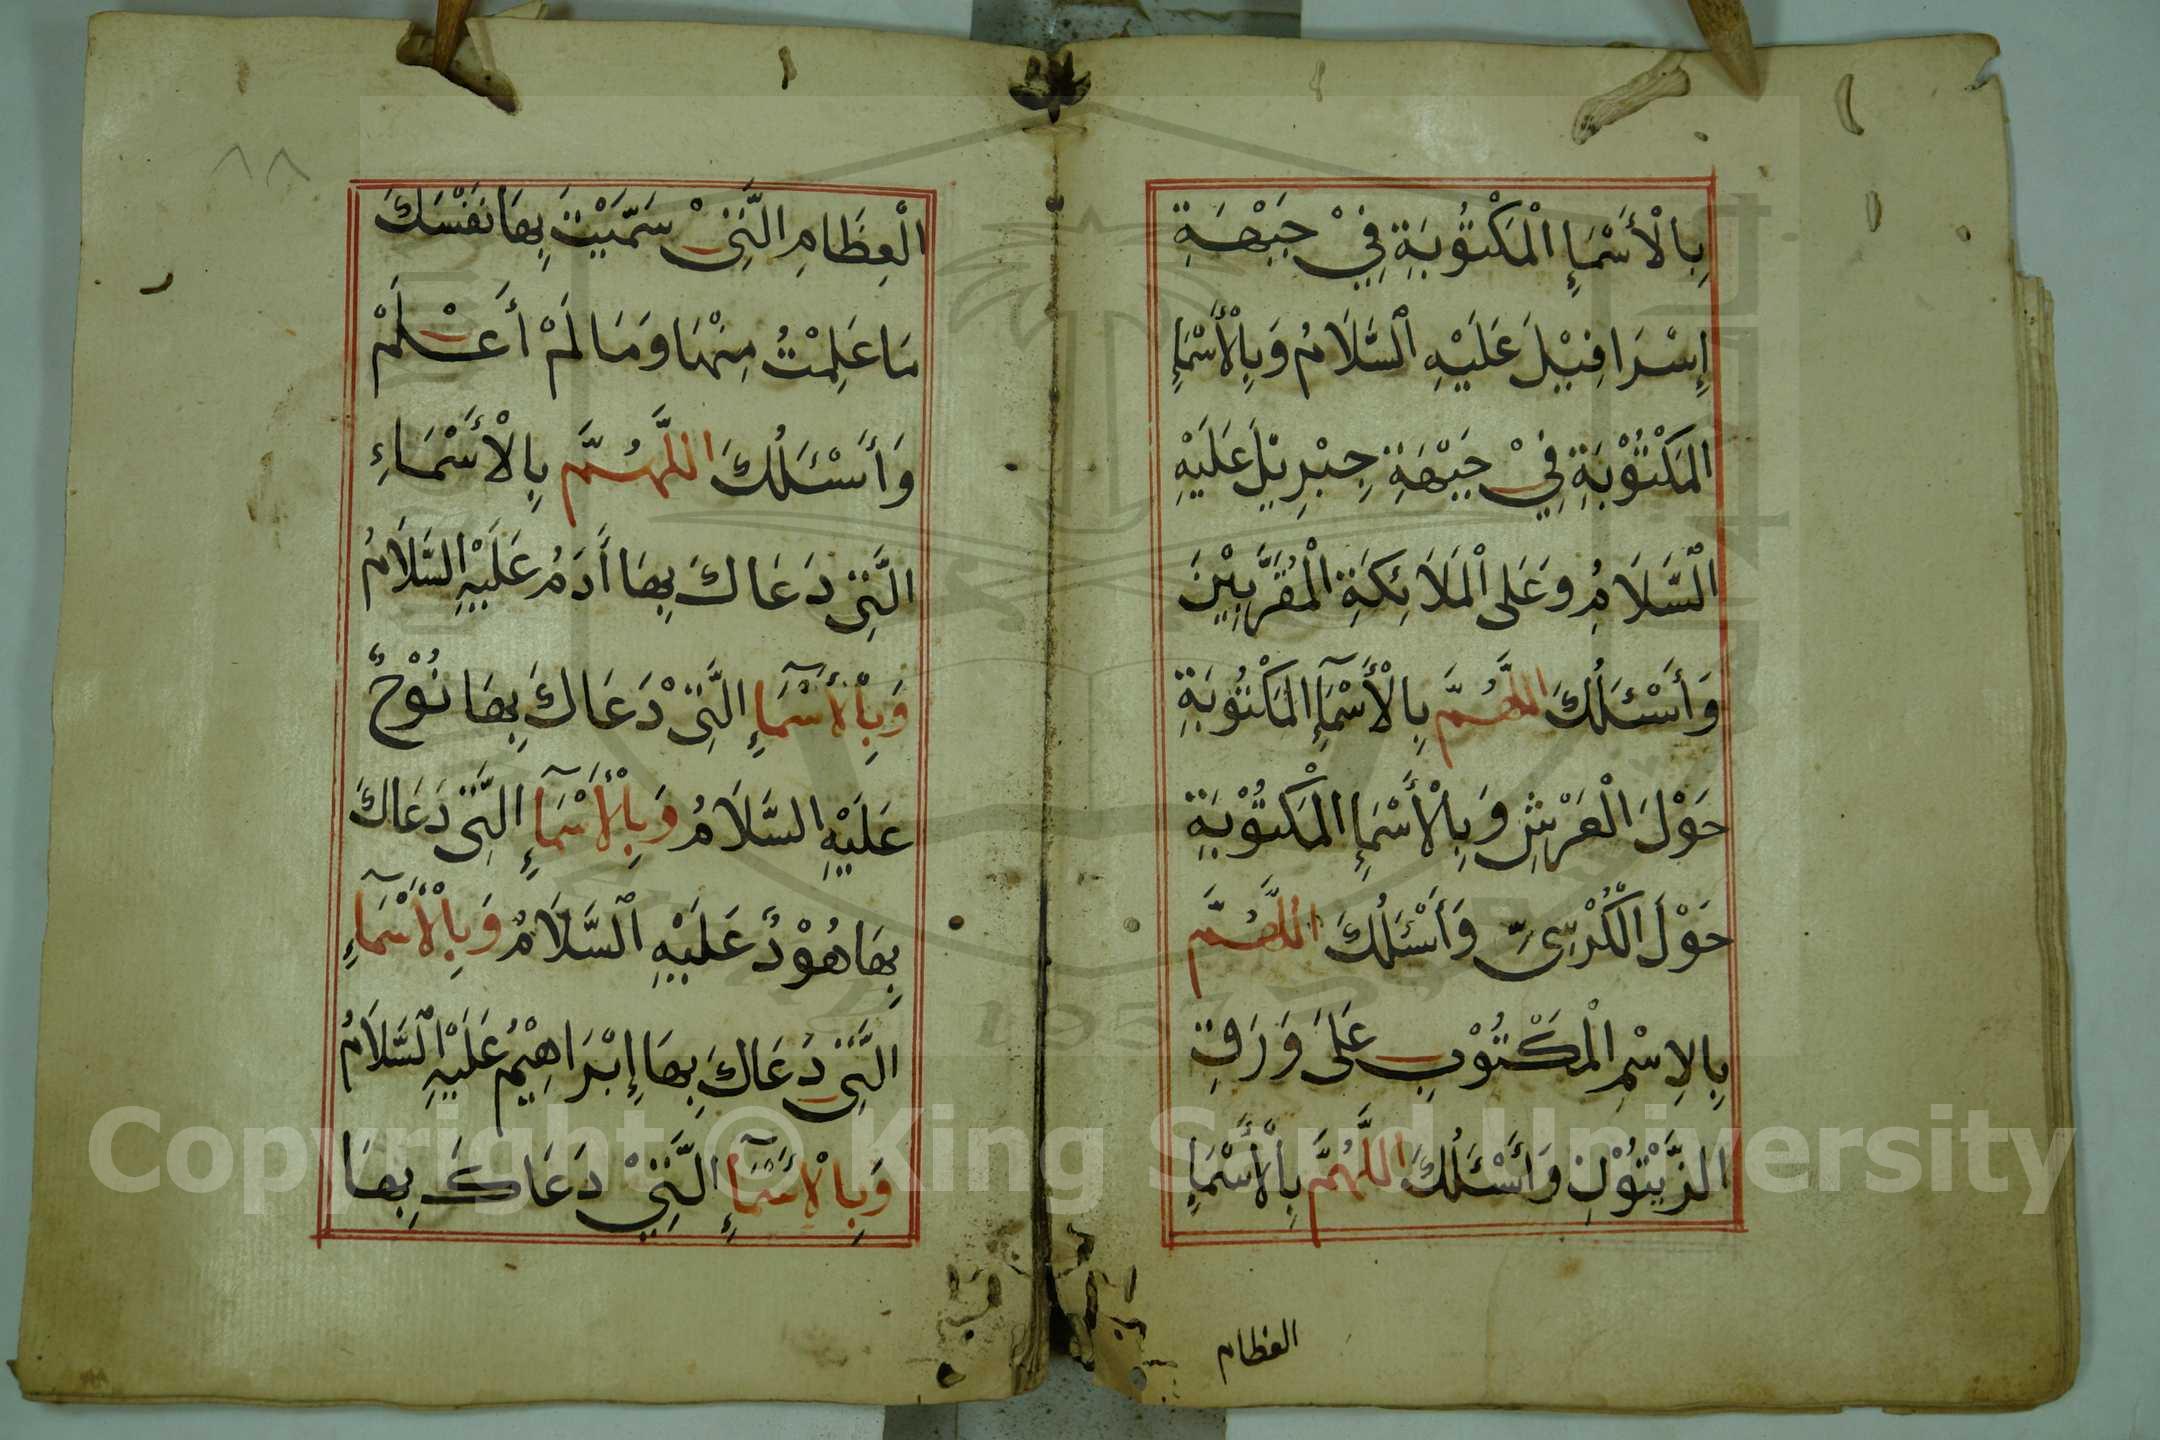 بِالْأَسْمَإِ الْمَكْتُوبَةِ فِيْ جَبْهَةِ
إِسْرَافِيْلَ عَلَيْهِ السَّلَامُ وَبِالْأَسْمَإِ
المَكْتُوْبَةِ فِيْ جَبْهَةِ جِبْرِيْلَ عَلَيْهِ
الْسَّلَامُ وَعَلَى الْمَلَائِكَةِ الْمُقَرَّبِيْنَ
وَأَسْئَلُكَ اللَّهُمَّ بِالْأَسْمَآإِ المَكْتُوبَةِ
حَوْلَ الْعَرْشِ وَبِالْأَسْمَإِ الْمَكْتُوْبَةِ
حَوْلَ الْكُرْسِيِّ وَأَسْئَلُكَ اللَّهُمَّ
بِالِاسْمِ الْمَكْتُوْبِ عَلَى وَرَقِ
الزَّيْتُوْنِ وَأَسْئَلُكَ اللَّهُمَّ بِالْأَسْمَإِ
العظام
٨٨
الْعِظَامِ الَّتِيْ سَمَّيْتَ بِهَا نَفْسَكَ
مَا عَلِمْتُ مِنْهَا وَمَا لَمْ أَعْلَمْ
وَأَسْئَلُكَ اللَّهُمَّ بِالْأَسْمَاءِ
الَّتِي دَعَاكَ بِهَا أَدَمُ عَلَيْهِ السَّلَامُ
وَبِالْأَسْمَآإِ الَّتِيْ دَعَاكَ بِهَا نُوْحٌ
عَلَيْهِ السَّلَامُ وَبِالْأَسْمَآإِ الَّتِي دَعَاكَ
بِهَا هُوْدٌ عَلَيْهِ السَّلَامُ وَبِالْأَسْمَآءِ
الَّتِي دَعَاكَ بِهَا إِبْرَاهِيْمُ عَلَيْهِ السَّلَامُ
وَبِالْأَسْمَآإِ الَّتِيْ دَعَاكَ بِهَا
Copyright © King Saud University